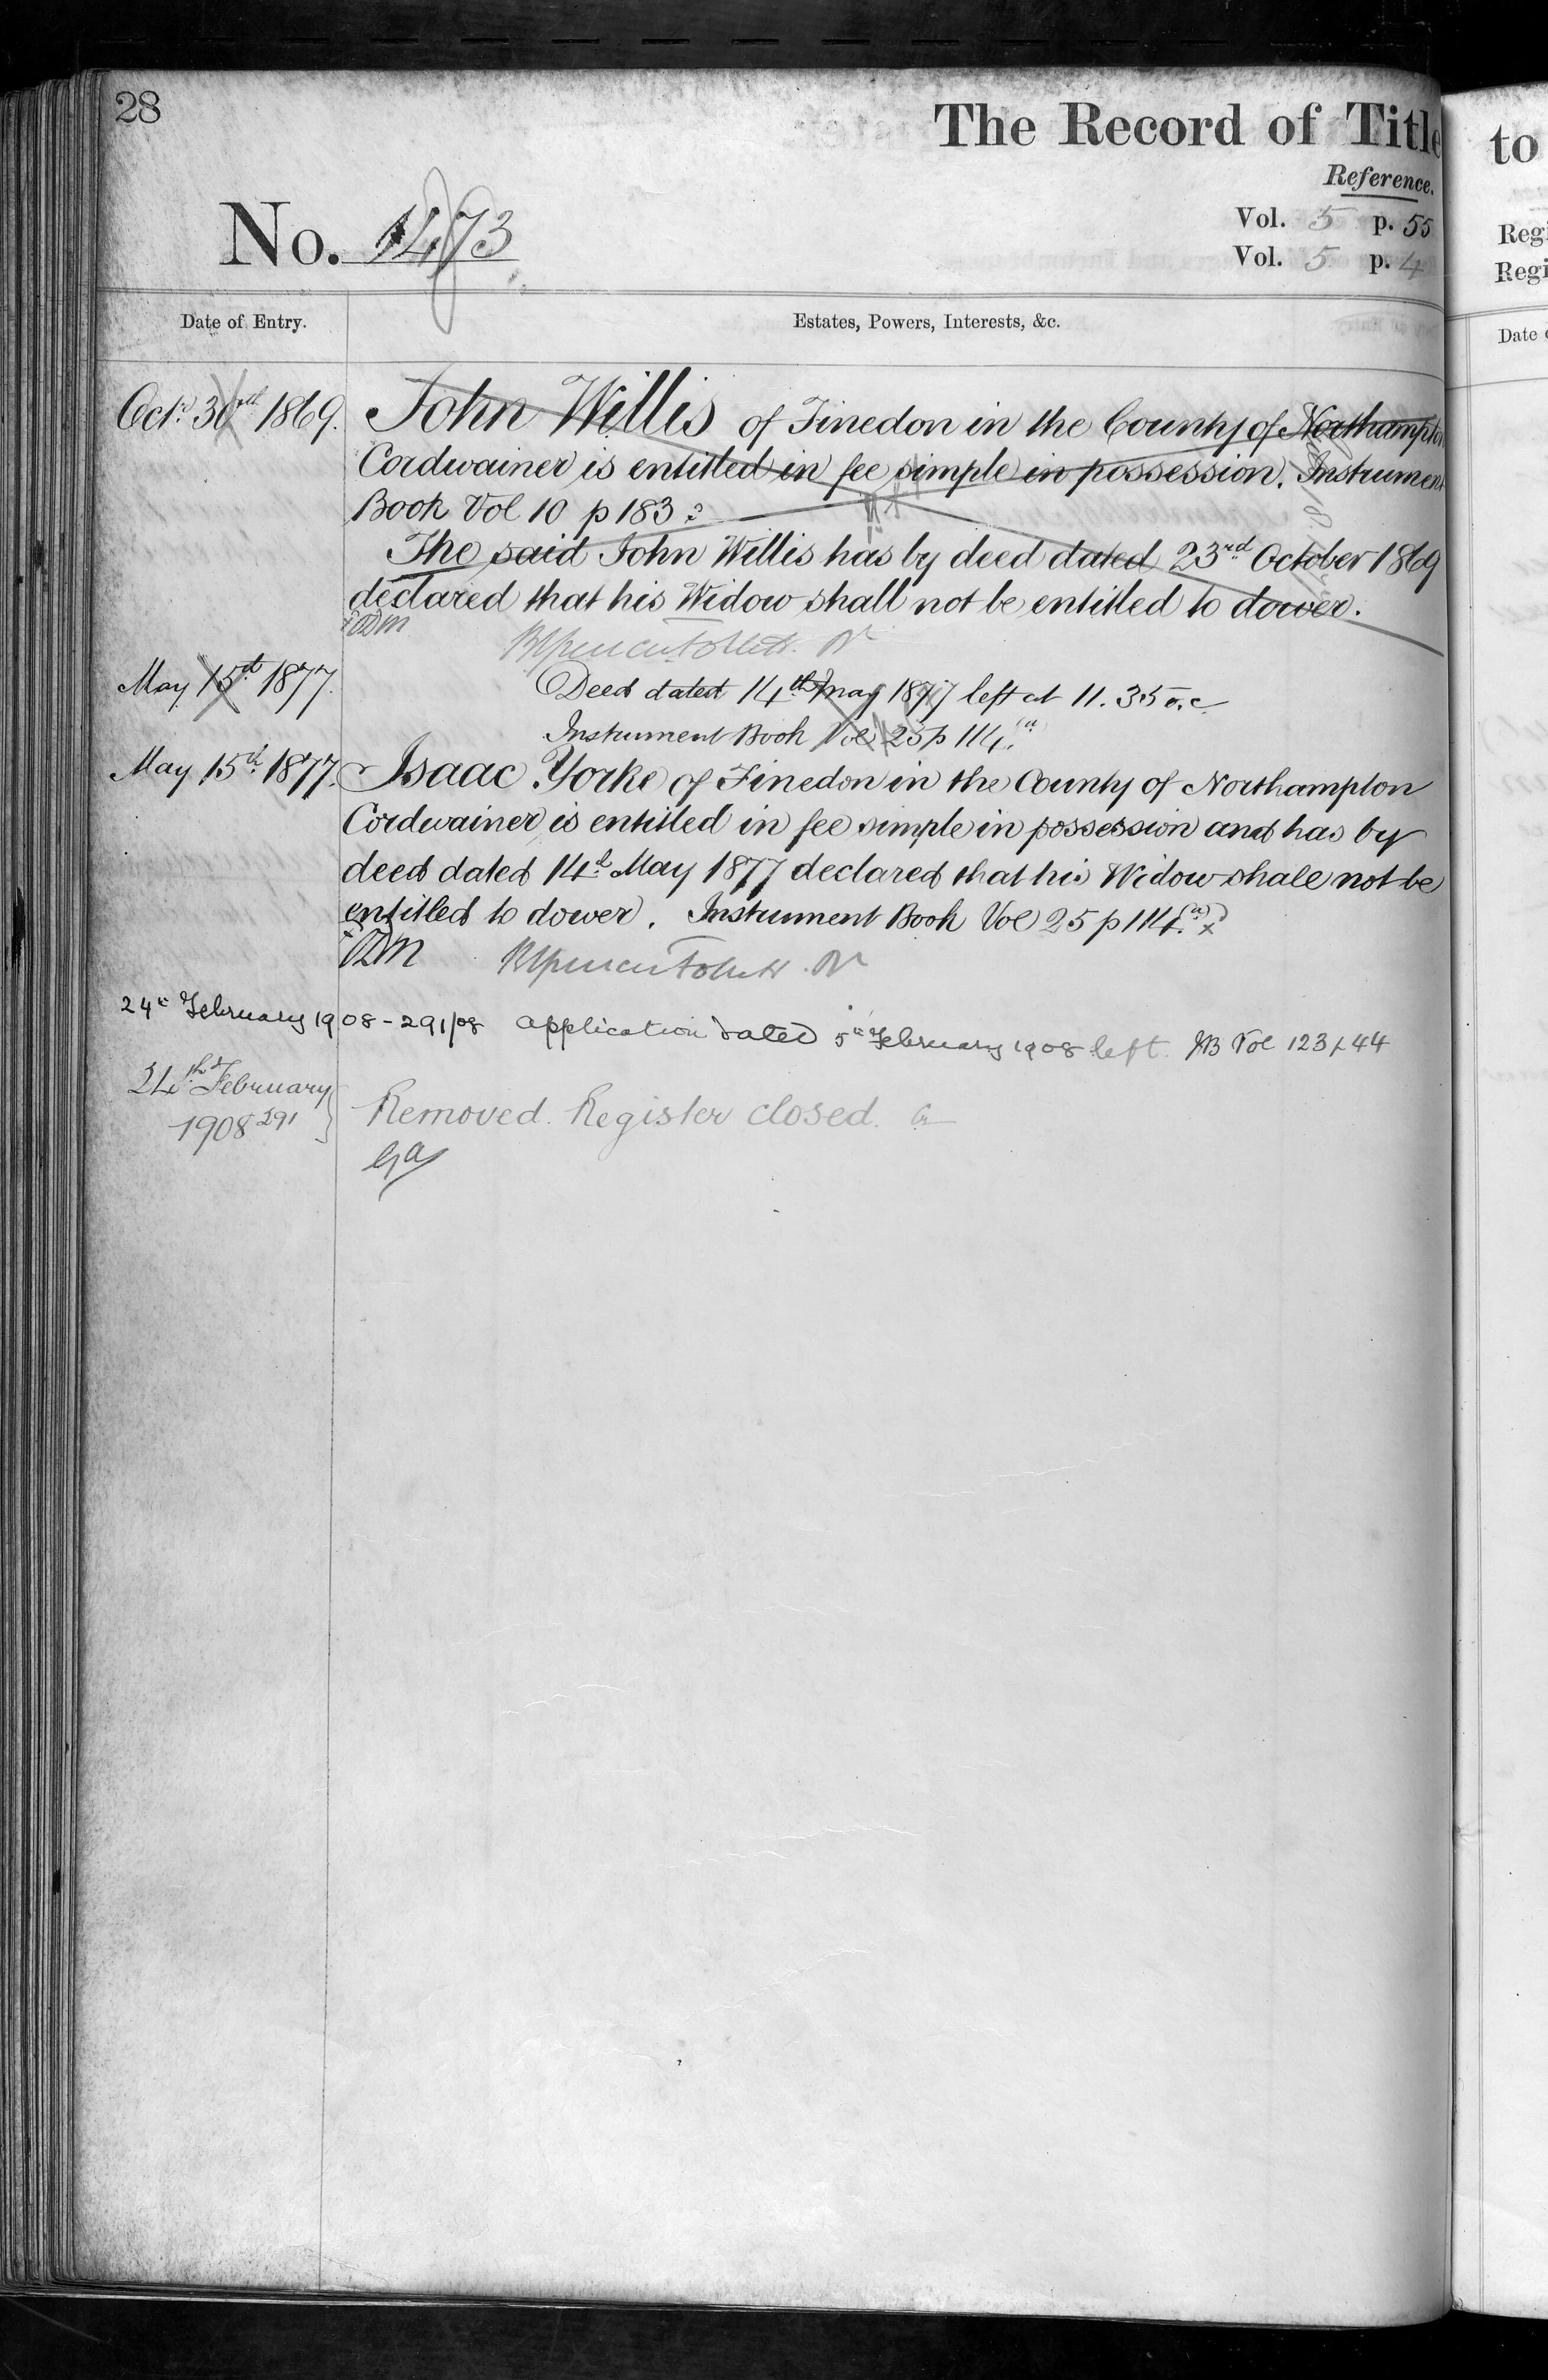 28
The Record of Title
to
Reference.
No. 1473
Vol. 5 p. 55
Vol. 5 p. 4
Regi
Regi
Date of Entry.
Estates, Powers, Interests, &c.
Date
Oct. 30th 1869. John Willis of Finedon in the County of Northampton
Cordwainer is entitled in fee simple in possession. Instrument
Book Vol 10 p 183
The said John Willis has by deed dated 23rd October 1869
declared that his Widow shall not be entitled to dower.
May 15th 1877. Deed dated 14th May 1877 left at 11.35
Instrument Book Vol 25 p 114.
May 15th 1877. Isaac Yorke of Finedon in the County of Northampton
Cordwainer is entitled in fee simple in possession and has by
deed dated 14th May 1877 declared that his Widow shall not be
entitled to dower. Instrument Book Vol 25 p 114.
24th February 1908 - 291/08 application dated 5th February 1908 left. IB Vol 123 p 44
24th February
1908 291 Removed. Register closed.